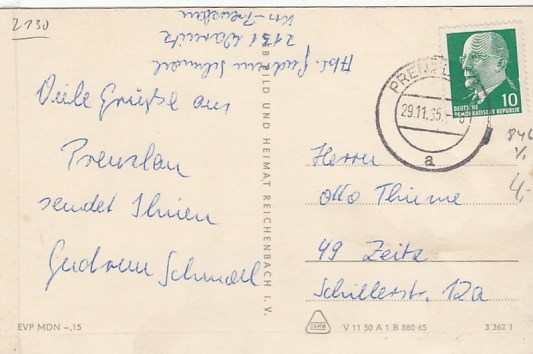 2130
Abs. Gudrun Schmael
2131 Warnitz
Krs. Prenzlau
Viele Grüße aus
Prenzlau
sendet Ihnen
Gudrun Schmael
BILD UND HEIMAT REICHENBACH I. V.
PRENZLAU
29.11.65
a
10
DEUTSCHE
DEMOKRATISCHE REPUBLIK
846
4,-
Herrn
Otto Thieme
49 Zeitz
Schillerstr. 12a
EVP MDN -,15
V 11 50 A 1 B 880 65
3 362 1